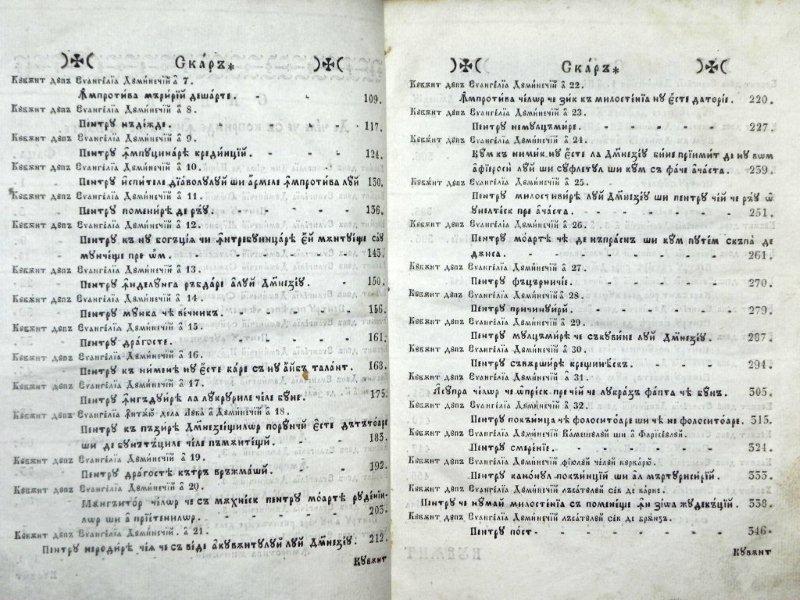 Скаръ*
Кꙋвѫнт дꙋпъ Еѵангелїа Дꙋминечїй а҃ 7.
Ꙟпротива мърирїй дешарте. - - 109.
Кꙋвѫнт дꙋпъ Еѵангелїа Дꙋминечїй а҃ 8.
Пентрꙋ нъдѣжде. - - - 117.
Кꙋвѫнт дꙋпъ Еѵангелїа Дꙋминечїй а҃ 9.
Пентрꙋ ꙟпꙋцинарѣ крединцїй. - - 124.
Кꙋвѫнт дꙋпъ Еѵангелїа Дꙋминечїй а҃ 10.
Пентрꙋ испителе дїаволꙋлꙋй ши армеле ꙟпротива лꙋй 130.
Кꙋвѫнт дꙋпъ Еѵангелїа Дꙋминечїй а҃ 11.
Пентрꙋ поменирѣ де ръꙋ. - - - 136.
Кꙋвѫнт дꙋпъ Еѵангелїа Дꙋминечїй а҃ 12.
Пентрꙋ къ нꙋ богъцїа чи ꙟтребꙋинцарѣ ей мѫнтꙋѣще саꙋ
мꙋнчѣще пре ѡм. - - - 143.
Кꙋвѫнт дꙋпъ Еѵангелїа Дꙋминечїй а҃ 13.
Пентрꙋ ꙟделꙋнга ръбдаре алꙋй Дм҃незѣꙋ. - 150.
Кꙋвѫнт дꙋпъ Еѵангелїа Дꙋминечїй а҃ 14.
Пентрꙋ мꙋнка чѣ вѣчникъ. - - 156.
Кꙋвѫнт дꙋпъ Еѵангелїа Дꙋминечїй а҃ 15.
Пентрꙋ драгосте. - - - 161.
Кꙋвѫнт дꙋпъ Еѵангелїа Дꙋминечїй а҃ 16.
Пентрꙋ къ нимене нꙋ есте каре съ нꙋ айбъ талант. - 168.
Кꙋвѫнт дꙋпъ Еѵангелїа Дꙋминечїй а҃ 17.
Пентрꙋ ꙟгъдꙋирѣ ла лꙋкрꙋриле чѣле бꙋне. - 175.
Кꙋвѫнт дꙋпъ Еѵангелїа дела Лꙋка а Дꙋминечїй а҃ 18.
Пентрꙋ къ пъзирѣ Дм҃незеещилѡр порꙋнчй есте дътътоаре
ши де бꙋнътъциле чѣле пъмѫнтещй. - - 183.
Кꙋвѫнт дꙋпъ Еѵангелїа Дꙋминечїй а҃ 19.
Пентрꙋ драгостѣ кътръ връжмашй. - - 192.
Кꙋвѫнт дꙋпъ Еѵангелїа Дꙋминечїй а҃ 20.
Мѫнгъитор челѡр че съ мѫхнеск пентрꙋ моартѣ рꙋденїи-
лѡр ши а прїетенилѡр. - - - 203.
Кꙋвѫнт дꙋпъ Еѵангелїа Дꙋминечїй а҃ 21.
Пентрꙋ неродирѣ чѣа че съ вѣде а кꙋвѫнтꙋлꙋй лꙋй Дм҃незѣꙋ. 212.
Кꙋвѫнт
Скаръ*
Кꙋвѫнт дꙋпъ Еѵангелїа Дꙋминечїй а҃ 22.
Ꙟпротива челѡр че зик къ милостенїа нꙋ есте даторїе. - 220.
Кꙋвѫнт дꙋпъ Еѵангелїа Дꙋминечїй а҃ 23.
Пентрꙋ немꙋлцъмире. - - - 227.
Кꙋвѫнт дꙋпъ Еѵангелїа Дꙋминечїй а҃ 24.
Кꙋм къ нимик нꙋ есте ла Дм҃незѣꙋ бине прїимит де нꙋ вѡм
афїероси лꙋй ши сꙋфлетꙋл ши кꙋм съ фаче ачаста. - 239.
Кꙋвѫнт дꙋпъ Еѵангелїа Дꙋминечїй а҃ 25.
Пентрꙋ милостивирѣ лꙋй Дм҃незѣꙋ ши пентрꙋ чей че ръꙋ ѡ
ꙋнелтеск пре ачаста. - - - 251.
Кꙋвѫнт дꙋпъ Еѵангелїа Дꙋминечїй а҃ 26.
Пентрꙋ моартѣ чѣ де нъпраснъ ши кꙋм пꙋтем скъпа де
дѫнса. - - - 261.
Кꙋвѫнт дꙋпъ Еѵангелїа Дꙋминечїй а҃ 27.
Пентрꙋ фъцърничїе. - - - 270.
Кꙋвѫнт дꙋпъ Еѵангелїа Дꙋминечїй а҃ 28.
Пентрꙋ причинꙋирй. - - - 279.
Кꙋвѫнт дꙋпъ Еѵангелїа Дꙋминечїй а҃ 29.
Пентрꙋ мꙋлцъмирѣ че съ кꙋвине лꙋй Дм҃незѣꙋ. - 287.
Кꙋвѫнт дꙋпъ Еѵангелїа Дꙋминечїй а҃ 30.
Пентрꙋ съвѫрширѣ крещинѣскъ. - - 294.
Кꙋвѫнт дꙋпъ Еѵангелїа Дꙋминечїй а҃ 31.
Асꙋпра челѡр че ѡпреск пре чей че лꙋкрѣзъ фапта чѣ бꙋнъ. 305.
Кꙋвѫнт дꙋпъ Еѵангелїа Дꙋминечїй а҃ 32.
Пентрꙋ покъинца чѣ фолоситоаре ши чѣ нефолоситоаре. 315.
Кꙋвѫнт дꙋпъ Еѵангелїа Дꙋминечїй Вамешꙋлꙋй ши а Фарисеꙋлꙋй.
Пентрꙋ смеренїе. - - - 324.
Кꙋвѫнт дꙋпъ Еѵангелїа Дꙋминечїй фїюлꙋй челꙋй кꙋрварю.
Пентрꙋ канонꙋл покъинцїй ши ал мъртꙋрисирїй. - 333.
Кꙋвѫнт дꙋпъ Еѵангелїа Дꙋминечїй лъсатꙋлꙋй сек де карне.
Пентрꙋ че нꙋмай милостенїа съ поменѣще ꙟ зїоа жꙋдекъцїй. 338.
Кꙋвѫнт дꙋпъ Еѵангелїа Дꙋминечїй лъсатꙋлꙋй сек де брѫнзъ.
Пентрꙋ пост. - - - 346.
Кꙋвѫнт